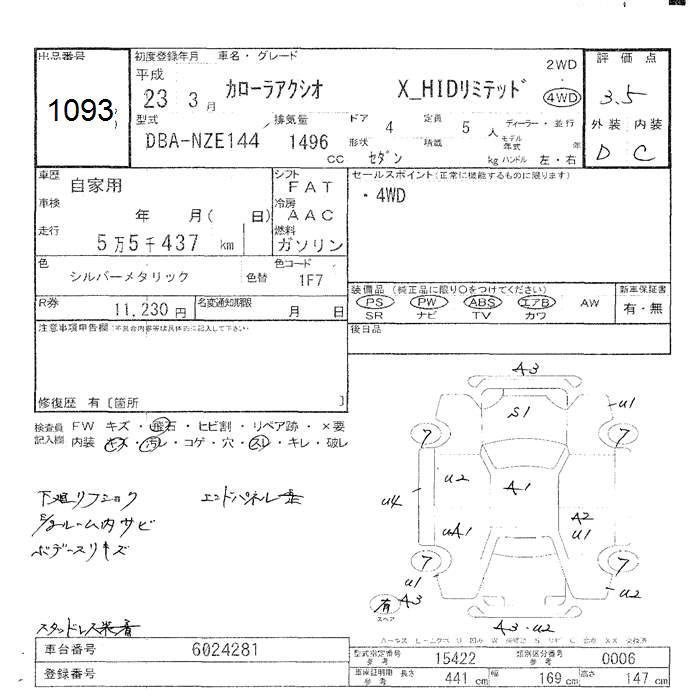 出品番号 初度登録年月 車名・グレード 2WD 評価点
平成
1093 23 3月 カローラアクシオ X_HIDリミテッド 4WD 3.5
型式 排気量 ドア 定員 ディーラー・並行 外装 内装
DBA-NZE144 1496 4 5 人 モデル年式 年 D C
cc 形状 セダン 積載 kg ハンドル 左・右
車歴 自家用 シフト FAT セールスポイント(正常に機能するものに限ります)
車検 年 月( 日) 冷房 AAC ・4WD
走行 5万5千437 km 燃料 ガソリン
色 シルバーメタリック 色替 色コード 1F7
装備品 (純正品に限り○をつけてください) 新車保証書
PS PW ABS エアB AW 有・無
SR ナビ TV カワ
R券 11,230円 名変通知期限 月 日
後日品
注意事項申告欄(不具合内容等は具体的に記入して下さい)
修復歴 有 [箇所 ]
検査員 FW キズ・飛石・ヒビ割・リペア跡・×要
記入欄 内装 キズ・汚レ・コゲ・穴・スレ・キレ・破レ
A3
S1 U1
7 7
U2 A1
U4
UA1 A2
U1
7 7
U1 U2
有 A3
スペア
A3・U2
ルーム内サビ
スタッドレス装着
車台番号 6024281
登録番号
型式指定番号 参考 15422 類別区分番号 参考 0006
車庫証明用 参考 長さ 441cm 幅 169cm 高さ 147cm